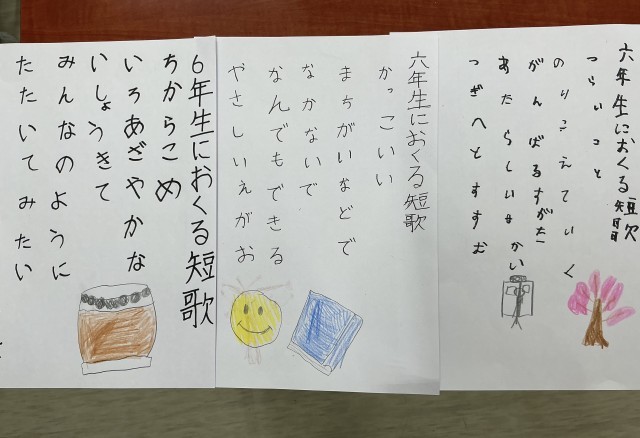 六年生におくる短歌
つらいこと
のりこえていく
がんばるすがた
あたらしいせかい
つぎへとすすむ
六年生におくる短歌
かっこいい
まちがいなどで
なかないで
なんでもできる
やさしいえがお
6年生におくる短歌
ちからこめ
いろあざやかな
いしょうきて
みんなのように
たたいてみたい